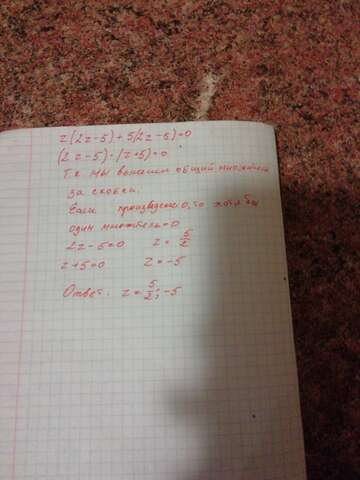 z(2z-5)+5(2z-5)=0
(2z-5)·(z+5)=0
Т.к. мы вынесли общий множитель
за скобки.
Если произведение 0, то хотя бы
один множитель=0
2z-5=0 z=5/2
z+5=0 z=-5
Ответ: z=5/2; -5